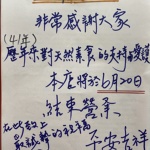 非常感謝大家
(41年)
歷年來對天然素食的支持與愛護
本店將於6月20日
結束營業
在此致上
最誠摯的祝福
平安吉祥